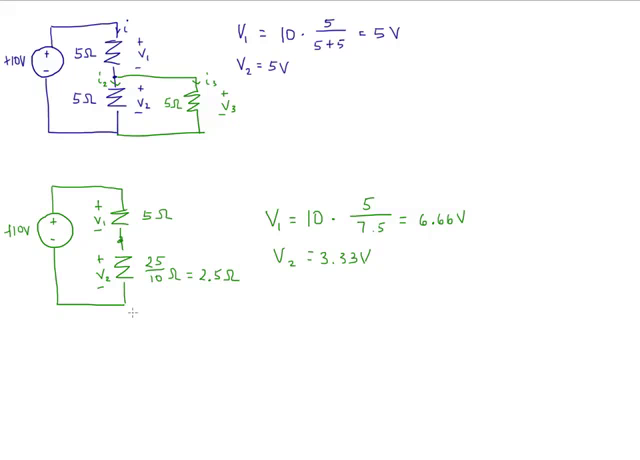 i
+10V
+
-
5Ω
+
V₁
-
i₂
i₃
5Ω
+
V₂
-
5Ω
+
V₃
-
V₁ = 10 · 5/(5+5) = 5V
V₂ = 5V
+10V
+
-
+
V₁
-
5Ω
+
V₂
-
25/10 Ω = 2.5Ω
V₁ = 10 · 5/7.5 = 6.66V
V₂ = 3.33V